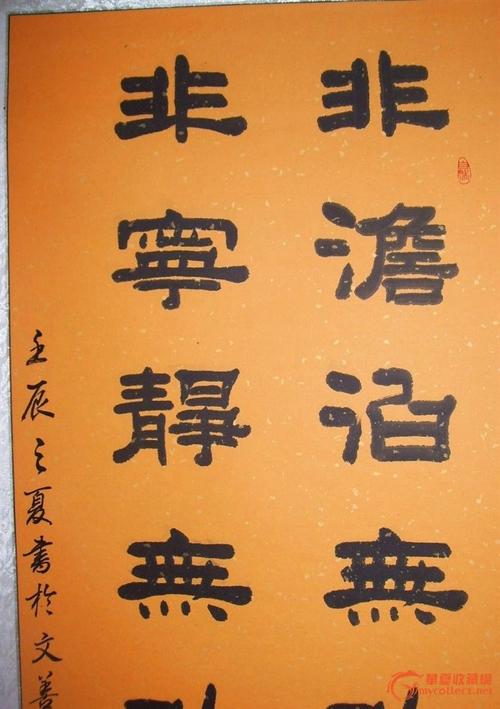 非澹泊無
非寧靜無
壬辰之夏書於文善
華夏收藏網
mycollect.net